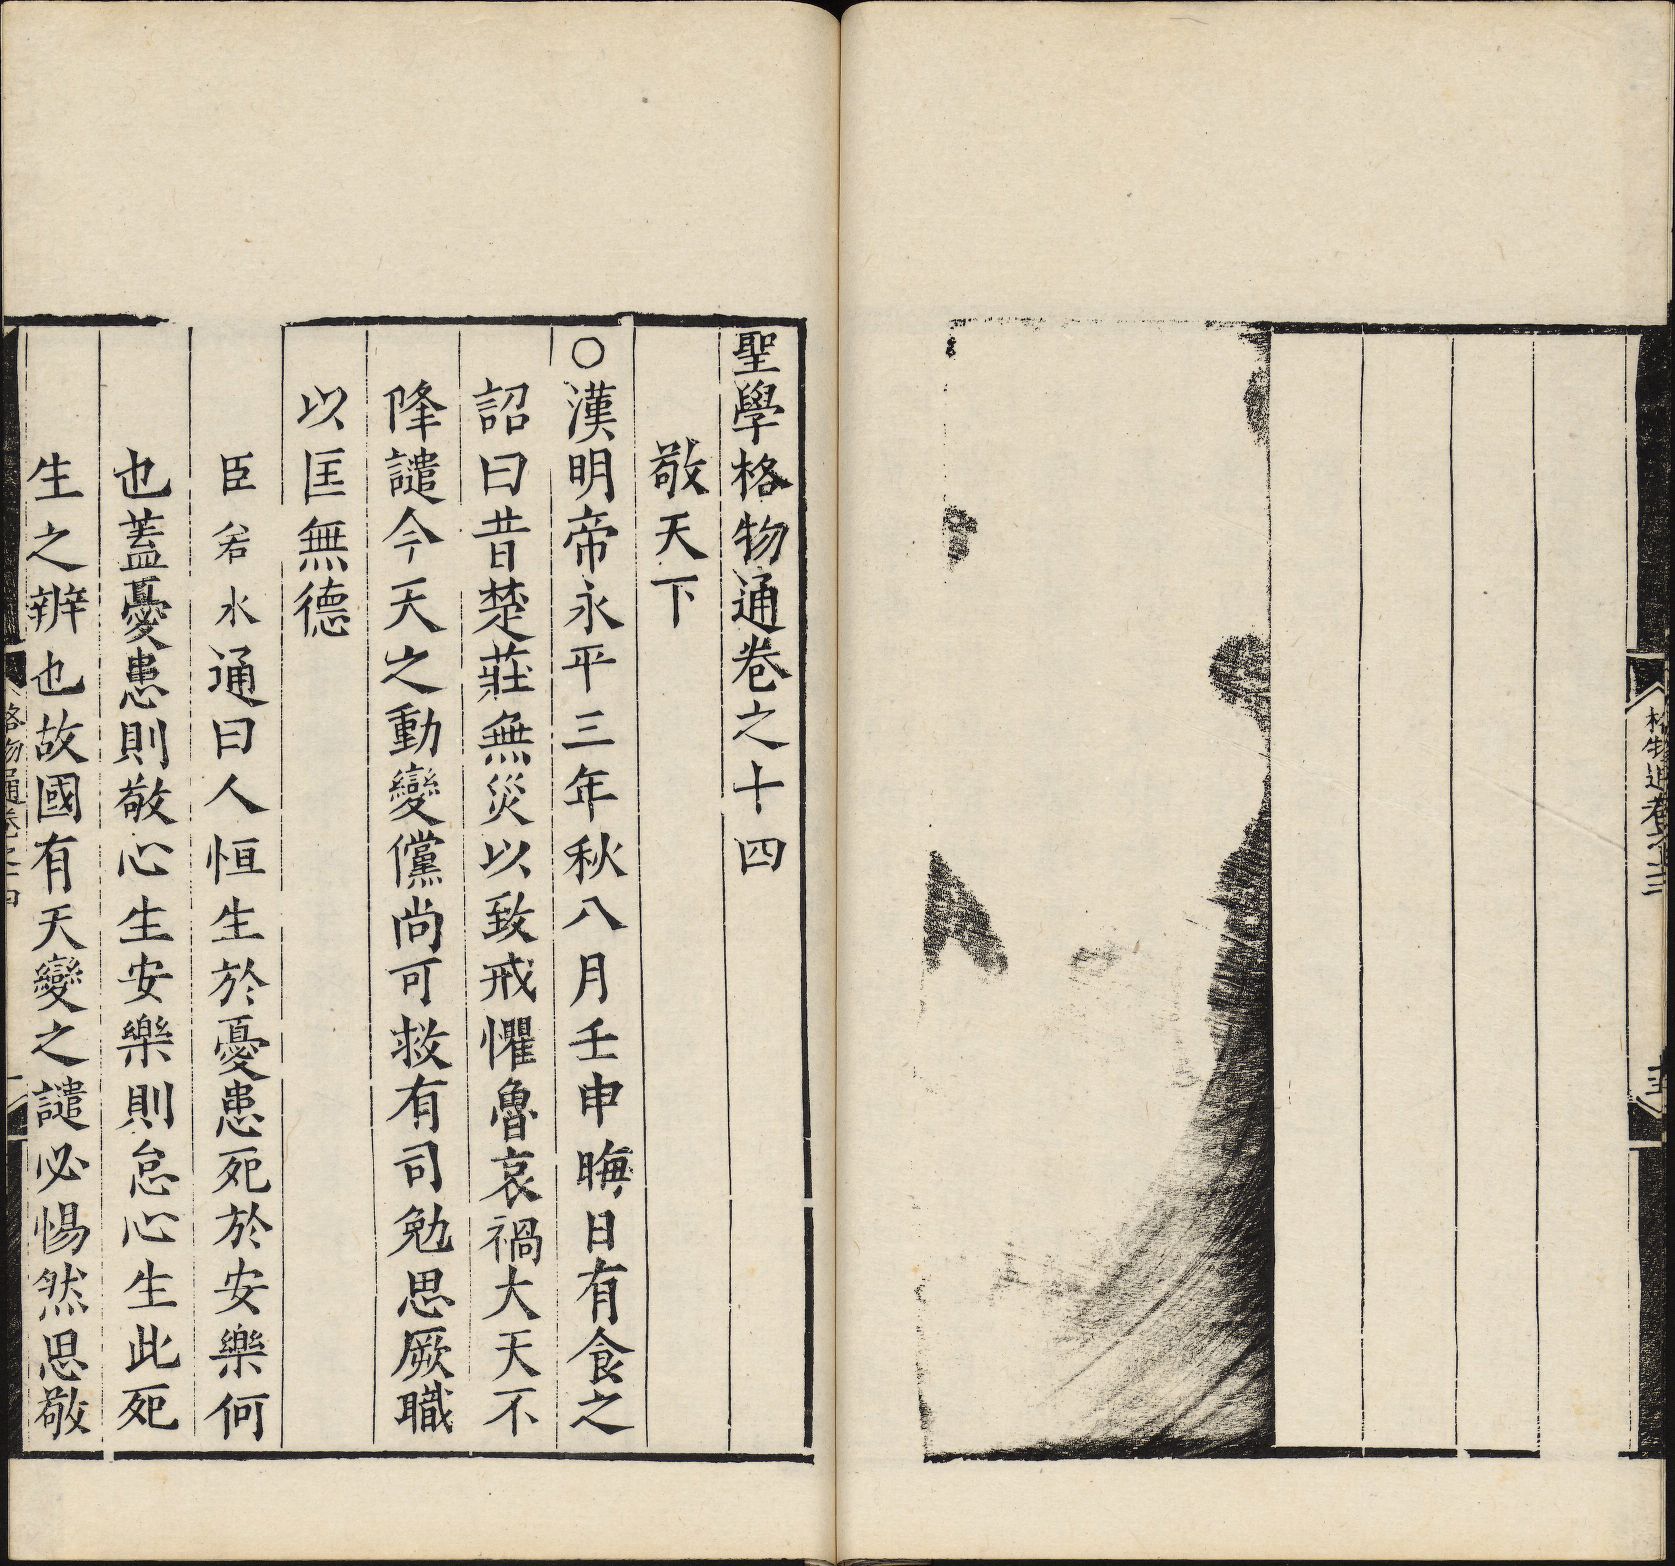 格物通卷之十三
十三
聖學格物通卷之十四
敬天下
○漢明帝永平三年秋八月壬申晦日有食之
詔曰昔楚莊無災以致戒懼魯哀禍大天不
降譴今天之動變儻尚可救有司勉思厥職
以匡無德
臣若水通曰人恒生於憂患死於安樂何
也蓋憂患則敬心生安樂則怠心生此死
生之辨也故國有天變之譴必惕然思敬
格物通卷之十四